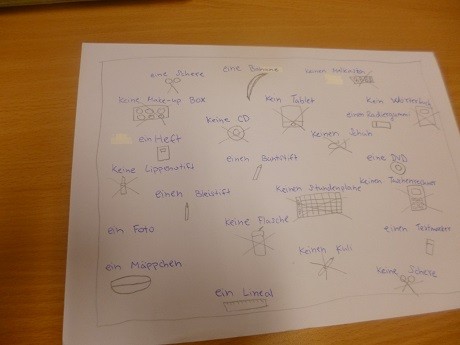 eine Schere
eine Banane
keine Make-up Box
kein Tablet
kein Wörterbuch
keine CD
einen Radiergummi
ein Heft
keinen Schuh
einen Buntstift
eine DVD
keine Lippenstift
einen Bleistift
keinen Stundenplane
keinen Taschenrechner
ein Foto
keine Flasche
einen Textmarker
ein Mäppchen
keinen Kuli
keine Schere
ein Lineal